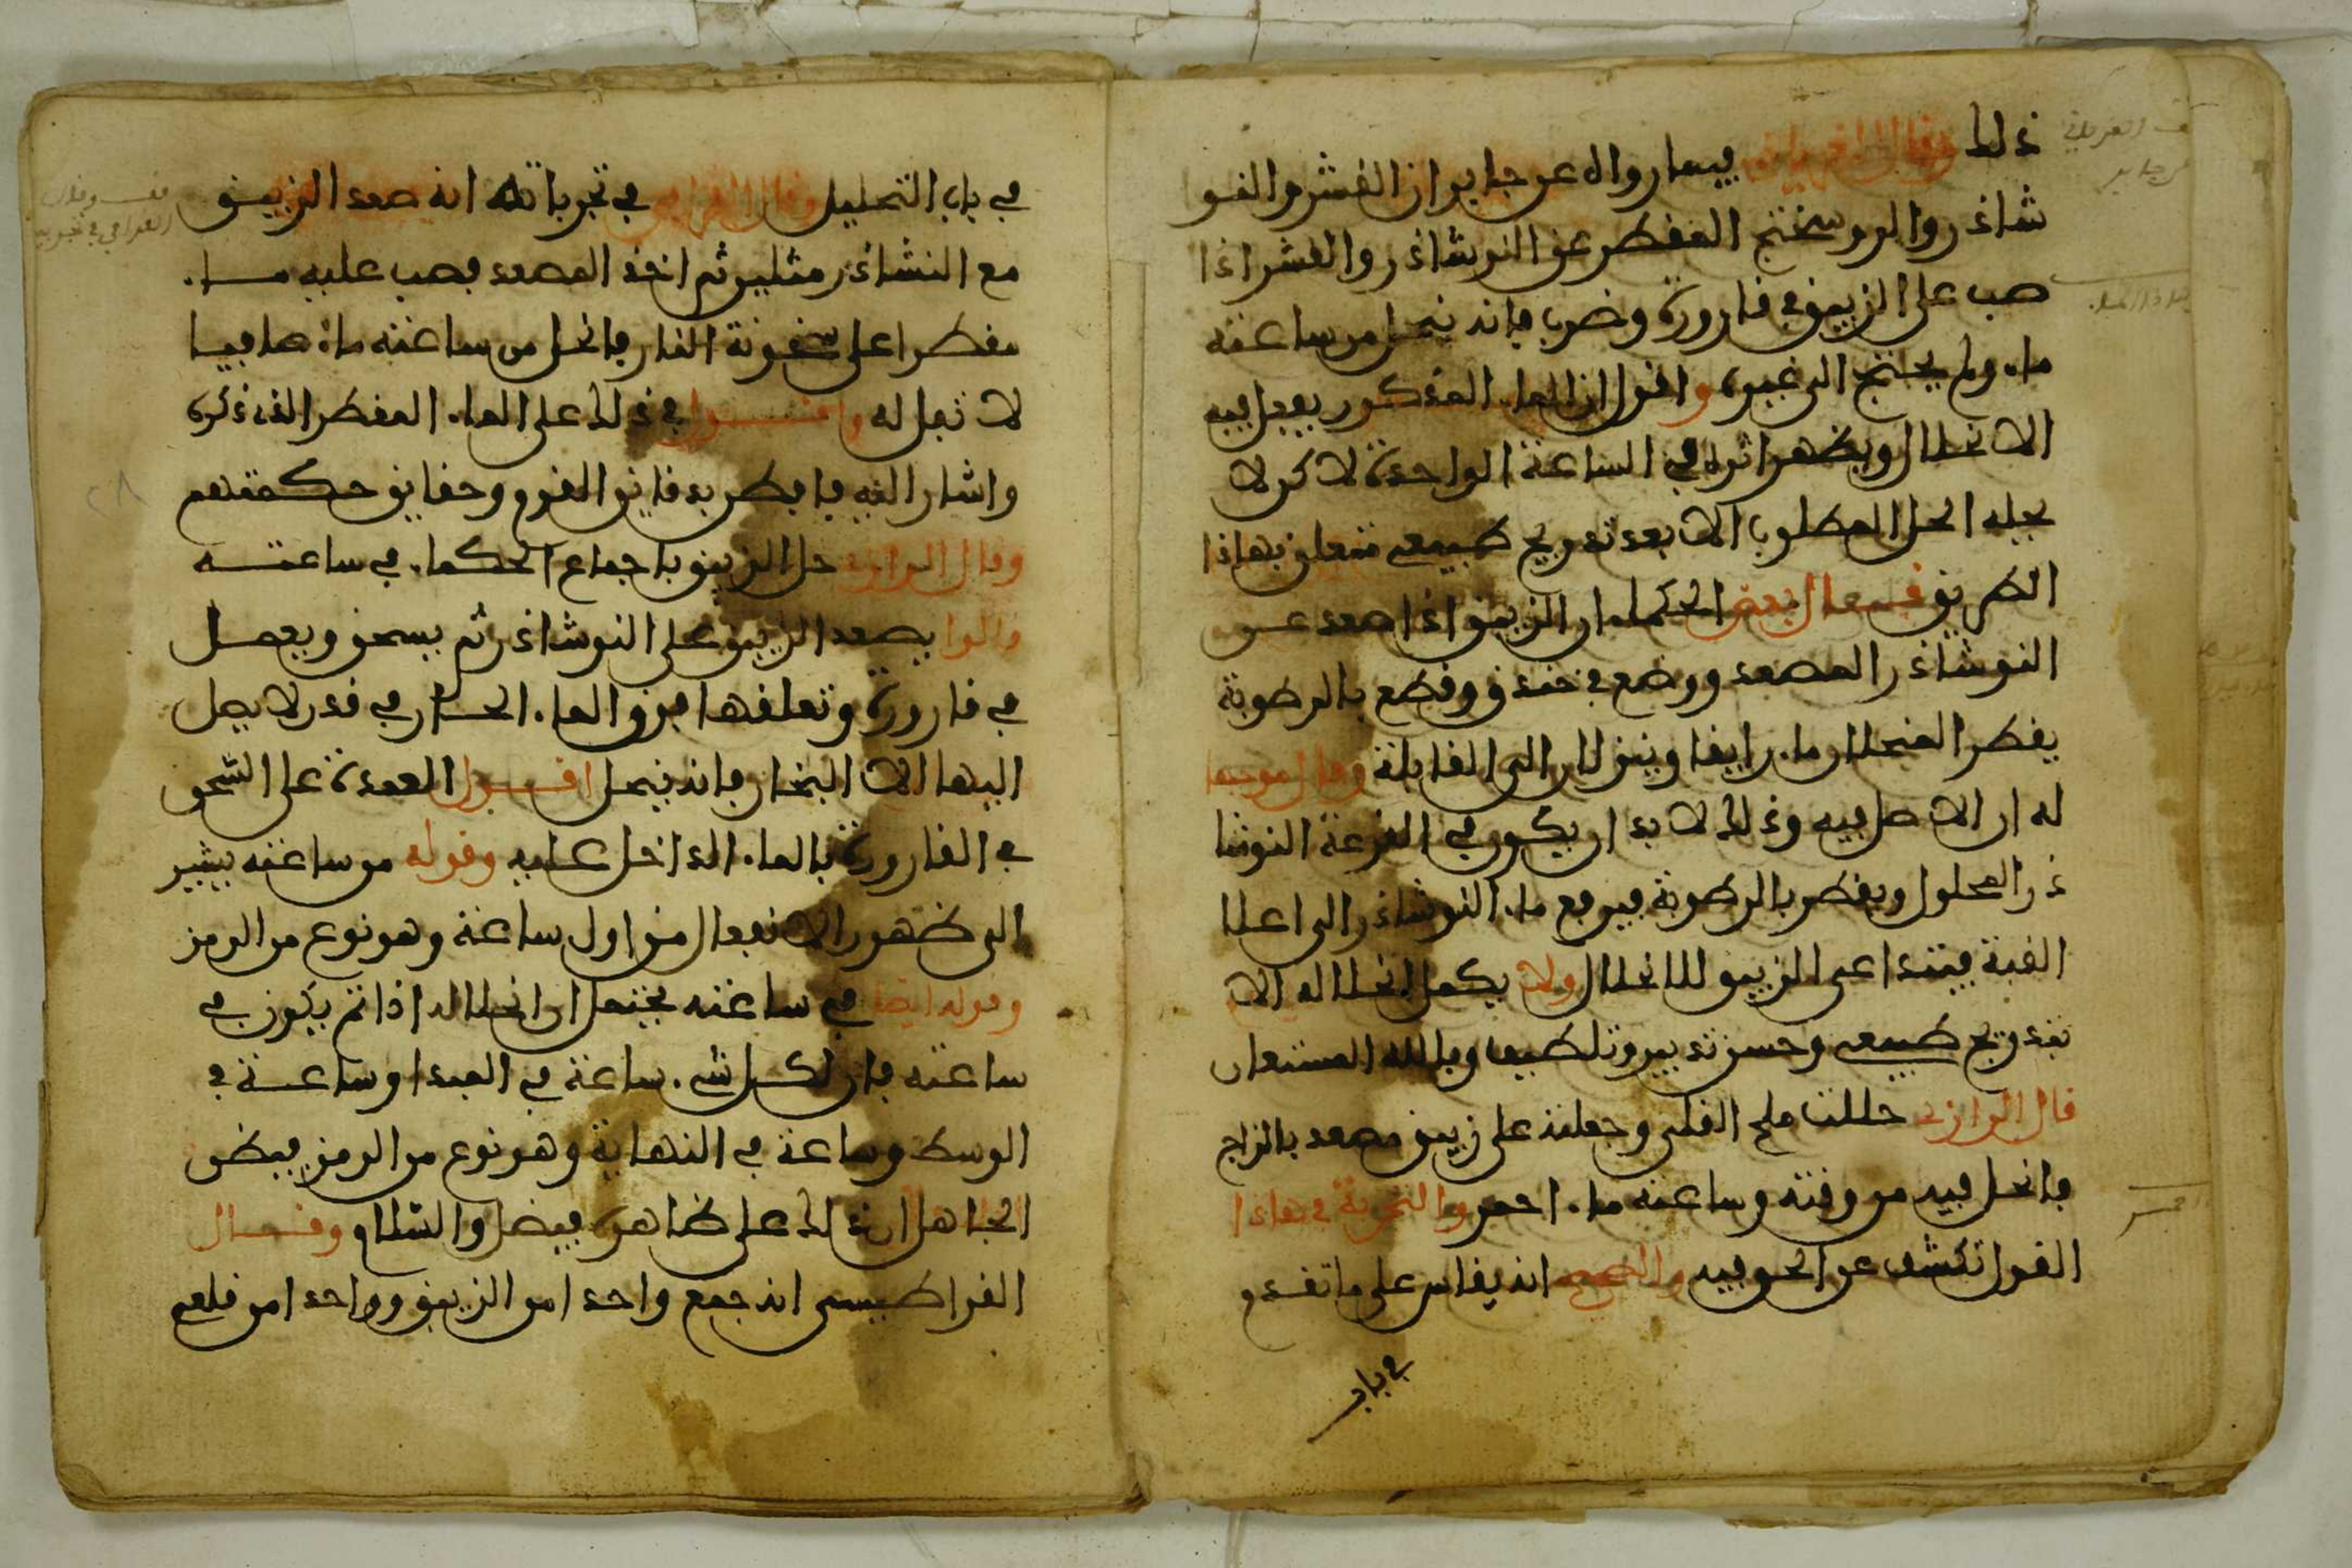 ذلك وقال الفرياني فيما رواه عن جابر ان القشر والنو
شاذر والروسختج المقطر عن النوشاذر والقشر اذا
صب على الزيبق في قارورة وضرب فانه ينحل من ساعته
ماء ولم يحتج الى غيره واقول ان الماء المذكور يفعل فيه
الانحلال ويظهر اثره في الساعة الواحدة لاكن لا
يجله الحل المطلوب الا بعد تدريج طبيعي متعلق بهاذا
الطريق فقال بعض الحكماء ان الزيبق اذا صعد عن
النوشاذر المصعد ووضع في خندق وقطع بالرطوبة
يقطر المنحل ماء رايقا وينزل الى القابلة وقال موسى
له ان الاصل فيه وذلك لا بد ان يكون في القرعة النوشا
ذر المحلول ويقطر بالرطوبة فيرفع ماء النوشاذر الى اعلا
القبة فيتداعى الزيبق للانحلال ولا يكمل انحلاله الا
بتدريج طبيعي وحسن تدبير وتلطيف وبالله المستعان
قال الرازي حللت ملح القلي وجعلته على زيبق مصعد بالزاج
فانحل فيه من وقته وساعته ماء احمر والتجربة في هاذا
القول تكشف عن الحق فيه والصحيح انه يقاس على ما تقدم
في باب
في باب التحليل وقال العراقي في تجرباته انه صعد الزيبق
مع النشاذر مثلين ثم اخذ المصعد فصب عليه ماء
مقطرا على سخونة النار فانحل من ساعته ماء صافيا
لا ثفل له واقول في ذلك على الماء المقطر الذي ذكره
واشار اليه فافطن بدقايق القوم وحقايق حكمتهم
وقال الرازي حل الزيبق باجماع الحكماء في ساعته
قالوا يصعد الزيبق على النوشاذر ثم يسحق ويعمل
في قارورة وتعلقها فوق الماء الحار في قدر لا يصل
اليها الا البخار فانه ينحل اقول العمدة على السحق
في القارورة بالماء الداخل عليه وقوله من ساعته يشير
الى ظهور الانفعال من اول ساعة وهو نوع من الرمز
وقوله ايضا في ساعته يحتمل ان انحلاله اذا تم يكون في
ساعته فان لكل شيء ساعة في المبدا وساعة في
الوسط وساعة في النهاية وهو نوع من الرمز فيظن
الجاهل ان ذلك على ظاهره فيضل والسلام وقال
الفراطيسي انه جمع واحدا من الزيبق وواحدا من قلعي